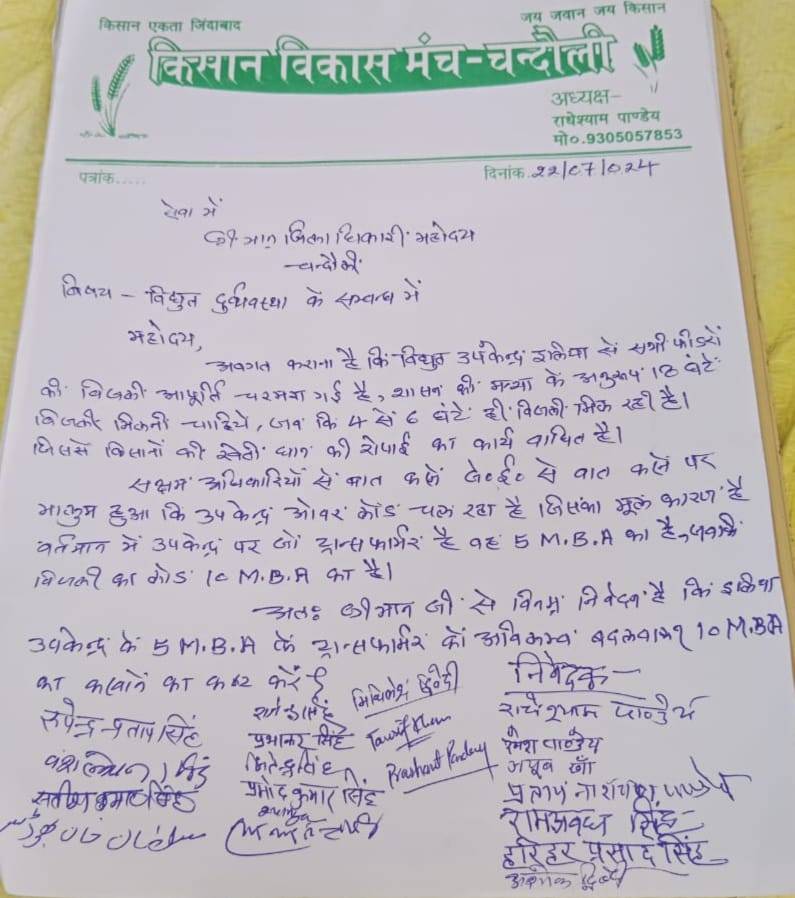 किसान एकता जिंदाबाद
जय जवान जय किसान
किसान विकास मंच-चन्दौली
अध्यक्ष-
राधेश्याम पाण्डेय
मो०.9305057853
पत्रांक.....
दिनांक.22/07/024
सेवा में
श्रीमान जिलाधिकारी महोदय
चन्दौली
विषय - विद्युत दुर्व्यवस्था के सम्बन्ध में
महोदय,
अवगत कराना है कि विद्युत उपकेन्द्र इलिया से सभी फीडरों
की बिजली आपूर्ति चरमरा गई है, शासन की मन्शा के अनुरूप 18 घंटे
बिजली मिलनी चाहिये, जब कि 4 से 6 घंटे ही बिजली मिल रही है।
जिससे किसानों की खेती धान की रोपाई का कार्य बाधित है।
सक्षम अधिकारियों से बात करने जे०ई० से बात करने पर
मालुम हुआ कि उपकेन्द्र ओवर लोड चल रहा है जिसका मूल कारण है
वर्तमान में उपकेन्द्र पर जो ट्रान्सफार्मर है वह 5 M.B.A का है, जबकि
बिजली का लोड 10 M.B.A का है।
अतः श्रीमान जी से विनम्र निवेदन है कि इलिया
उपकेन्द्र के 5 M.B.A के ट्रान्सफार्मर को अविलम्ब बदलवाकर 10 M.B.A
का लगवाने का कष्ट करें।
निवेदक-
राधेश्याम पाण्डेय
मिथिलेश द्विवेदी
रुपेन्द्र प्रताप सिंह
प्रभाकर सिंह
Tausif Khan
रमेश पाण्डेय
जितेन्द्र सिंह
Prashant Pandey
खाँ
सतीश कुमार सिंह
प्रमोद कुमार सिंह
प्रताप नारायण पाण्डेय
रामअवध सिंह
हरिहर प्रसाद सिंह
द्विवेदी